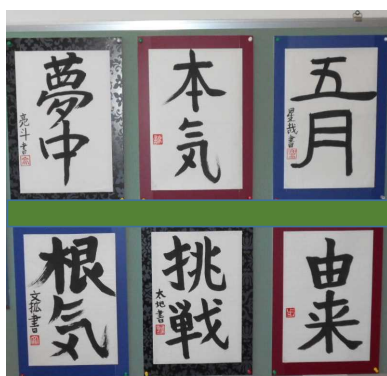 夢中
亮斗書
本気
五月
星哉書
根気
文孤書
挑戦
太地書
由来